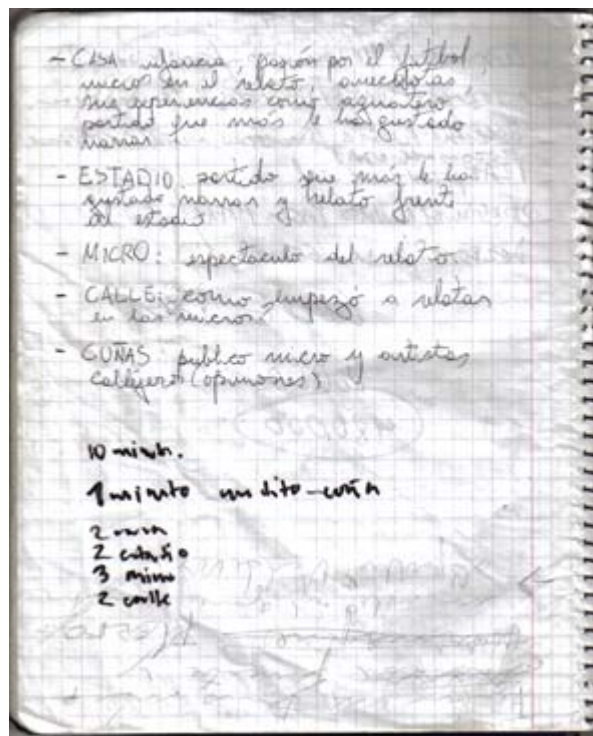 - CASA infancia, pasión por el futbol,
inicio en el relato, anecdotas,
sus experiencias como aguatero,
partido que más le ha gustado
narrar.
- ESTADIO: partido que más le ha
gustado narrar y relato frente
al estadio
- MICRO: espectaculo del relato.
- CALLE: como empezó a relatar
en las micros?
- CUÑAS: publico micro y artistas
callejeros (opiniones)
10 minutos.
1 minuto
2 casa
2 estadio
3 micro
2 calle